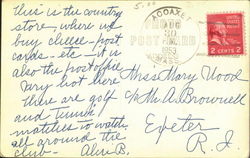 this is the country
store, where we
buy cheese-post
cards-etc-it is
also the post office
Very hot here
there are golf
and tennis
matches to watch
all around the
club- Aline B.
5.00
AUG
30
PM
1953
MASS.
POST CARD
2 CENTS 2
Miss Mary Wood
c/o Mr. A. Brownell
Exeter
R.I.